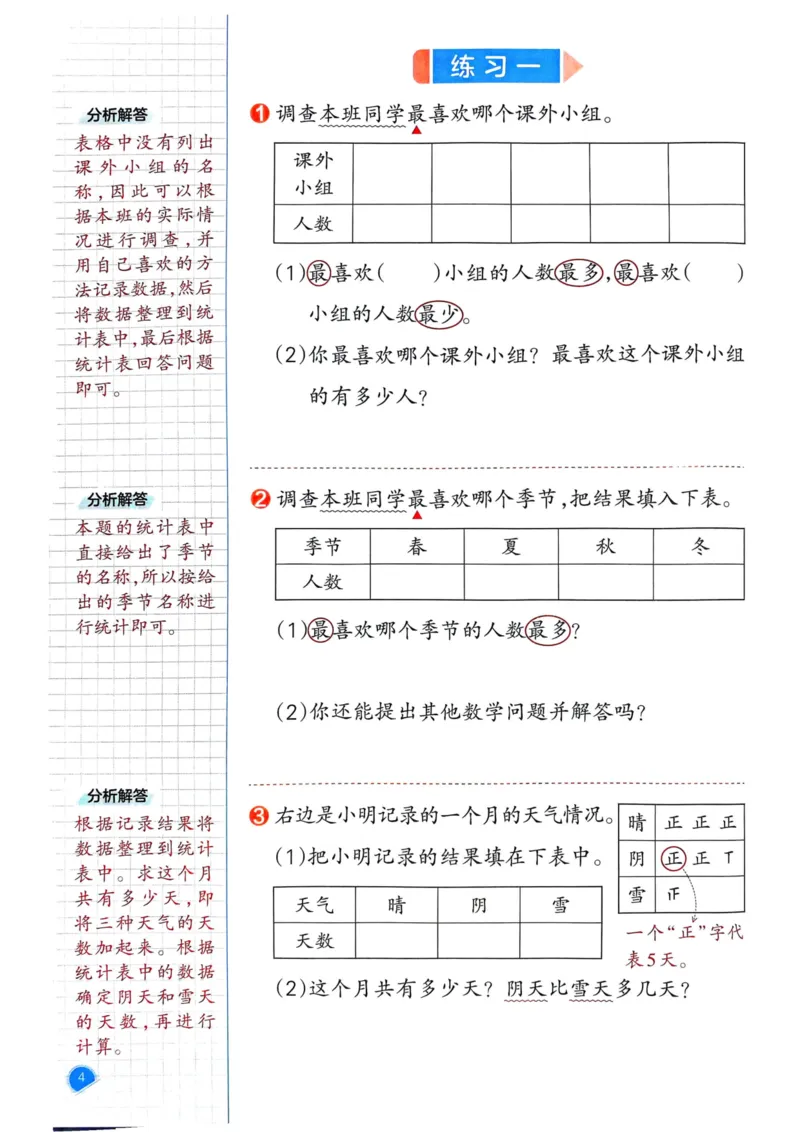 练习一
分析解答
表格中没有列出
课外小组的名
称,因此可以根
据本班的实际情
况进行调查,并
用自己喜欢的方
法记录数据,然后
将数据整理到统
计表中,最后根据
统计表回答问题
即可。
1 调查本班同学最喜欢哪个课外小组。
课外
小组
人数
(1)最喜欢(  )小组的人数最多,最喜欢(  )
小组的人数最少。
(2)你最喜欢哪个课外小组？最喜欢这个课外小组
的有多少人？
分析解答
本题的统计表中
直接给出了季节
的名称,所以按给
出的季节名称进
行统计即可。
2 调查本班同学最喜欢哪个季节,把结果填入下表。
季节 春 夏 秋 冬
人数
(1)最喜欢哪个季节的人数最多？
(2)你还能提出其他数学问题并解答吗？
分析解答
根据记录结果将
数据整理到统计
表中。求这个月
共有多少天,即
将三种天气的天
数加起来。根据
统计表中的数据
确定阴天和雪天
的天数,再进行
计算。
3 右边是小明记录的一个月的天气情况。
(1)把小明记录的结果填在下表中。
天气 晴 阴 雪
天数
晴 正 正 正
阴 正 正 丅
雪
一个“正”字代
表5天。
(2)这个月共有多少天？阴天比雪天多几天？
4